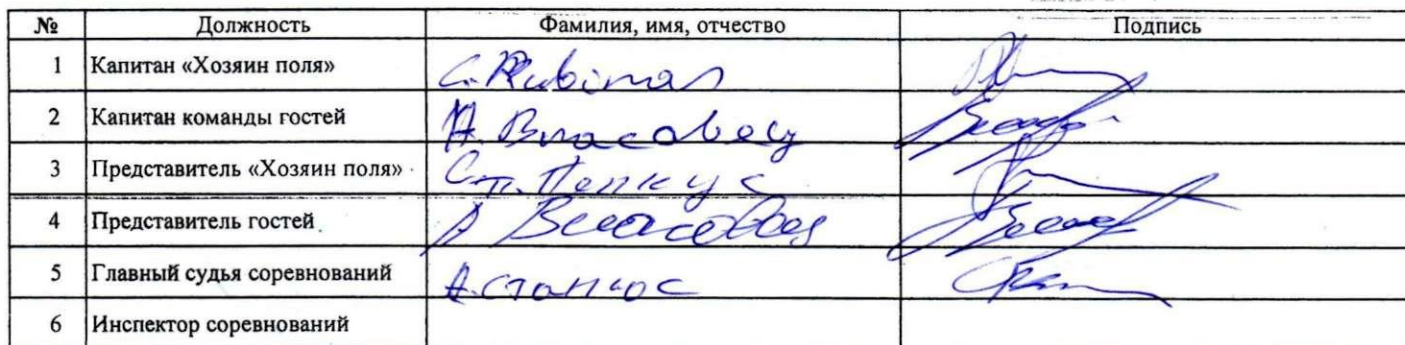 № Должность Фамилия, имя, отчество Подпись
1 Капитан «Хозяин поля» С.
2 Капитан команды гостей А. Власовец
3 Представитель «Хозяин поля» Ст. Пепкус
4 Представитель гостей А Власовец
5 Главный судья соревнований А.Станкус
6 Инспектор соревнований